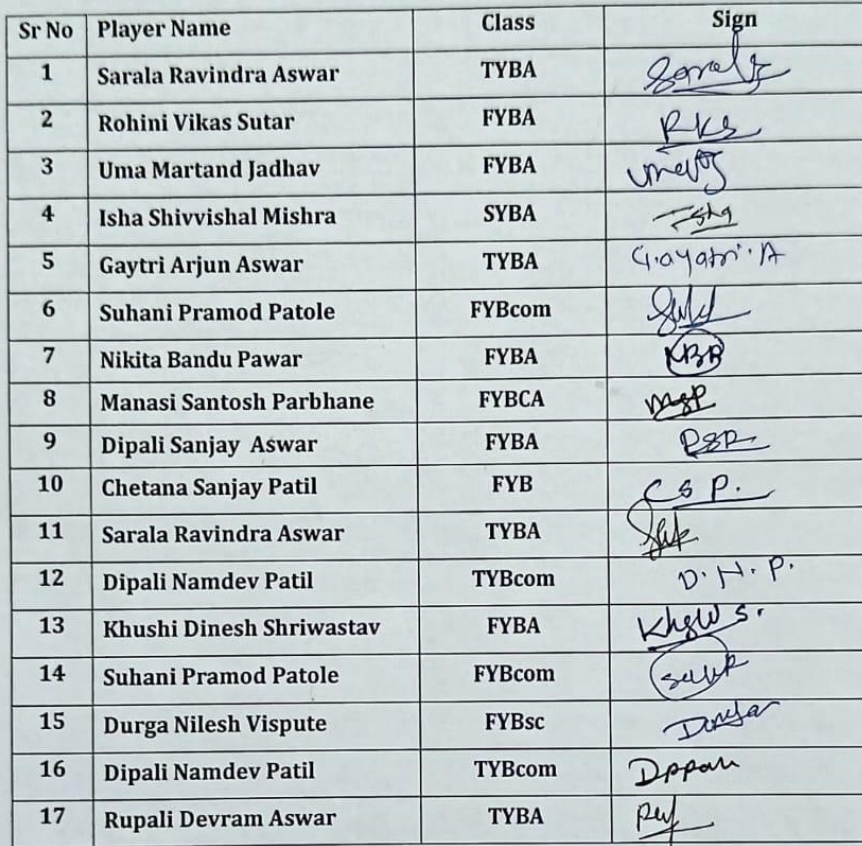 Sr No Player Name Class Sign
1 Sarala Ravindra Aswar TYBA
2 Rohini Vikas Sutar FYBA RKS
3 Uma Martand Jadhav FYBA
4 Isha Shivvishal Mishra SYBA
5 Gaytri Arjun Aswar TYBA Gayatri.A
6 Suhani Pramod Patole FYBcom
7 Nikita Bandu Pawar FYBA
8 Manasi Santosh Parbhane FYBCA MSP
9 Dipali Sanjay Aswar FYBA
10 Chetana Sanjay Patil FYB C S P.
11 Sarala Ravindra Aswar TYBA
12 Dipali Namdev Patil TYBcom D.N.P.
13 Khushi Dinesh Shriwastav FYBA
14 Suhani Pramod Patole FYBcom
15 Durga Nilesh Vispute FYBsc
16 Dipali Namdev Patil TYBcom
17 Rupali Devram Aswar TYBA